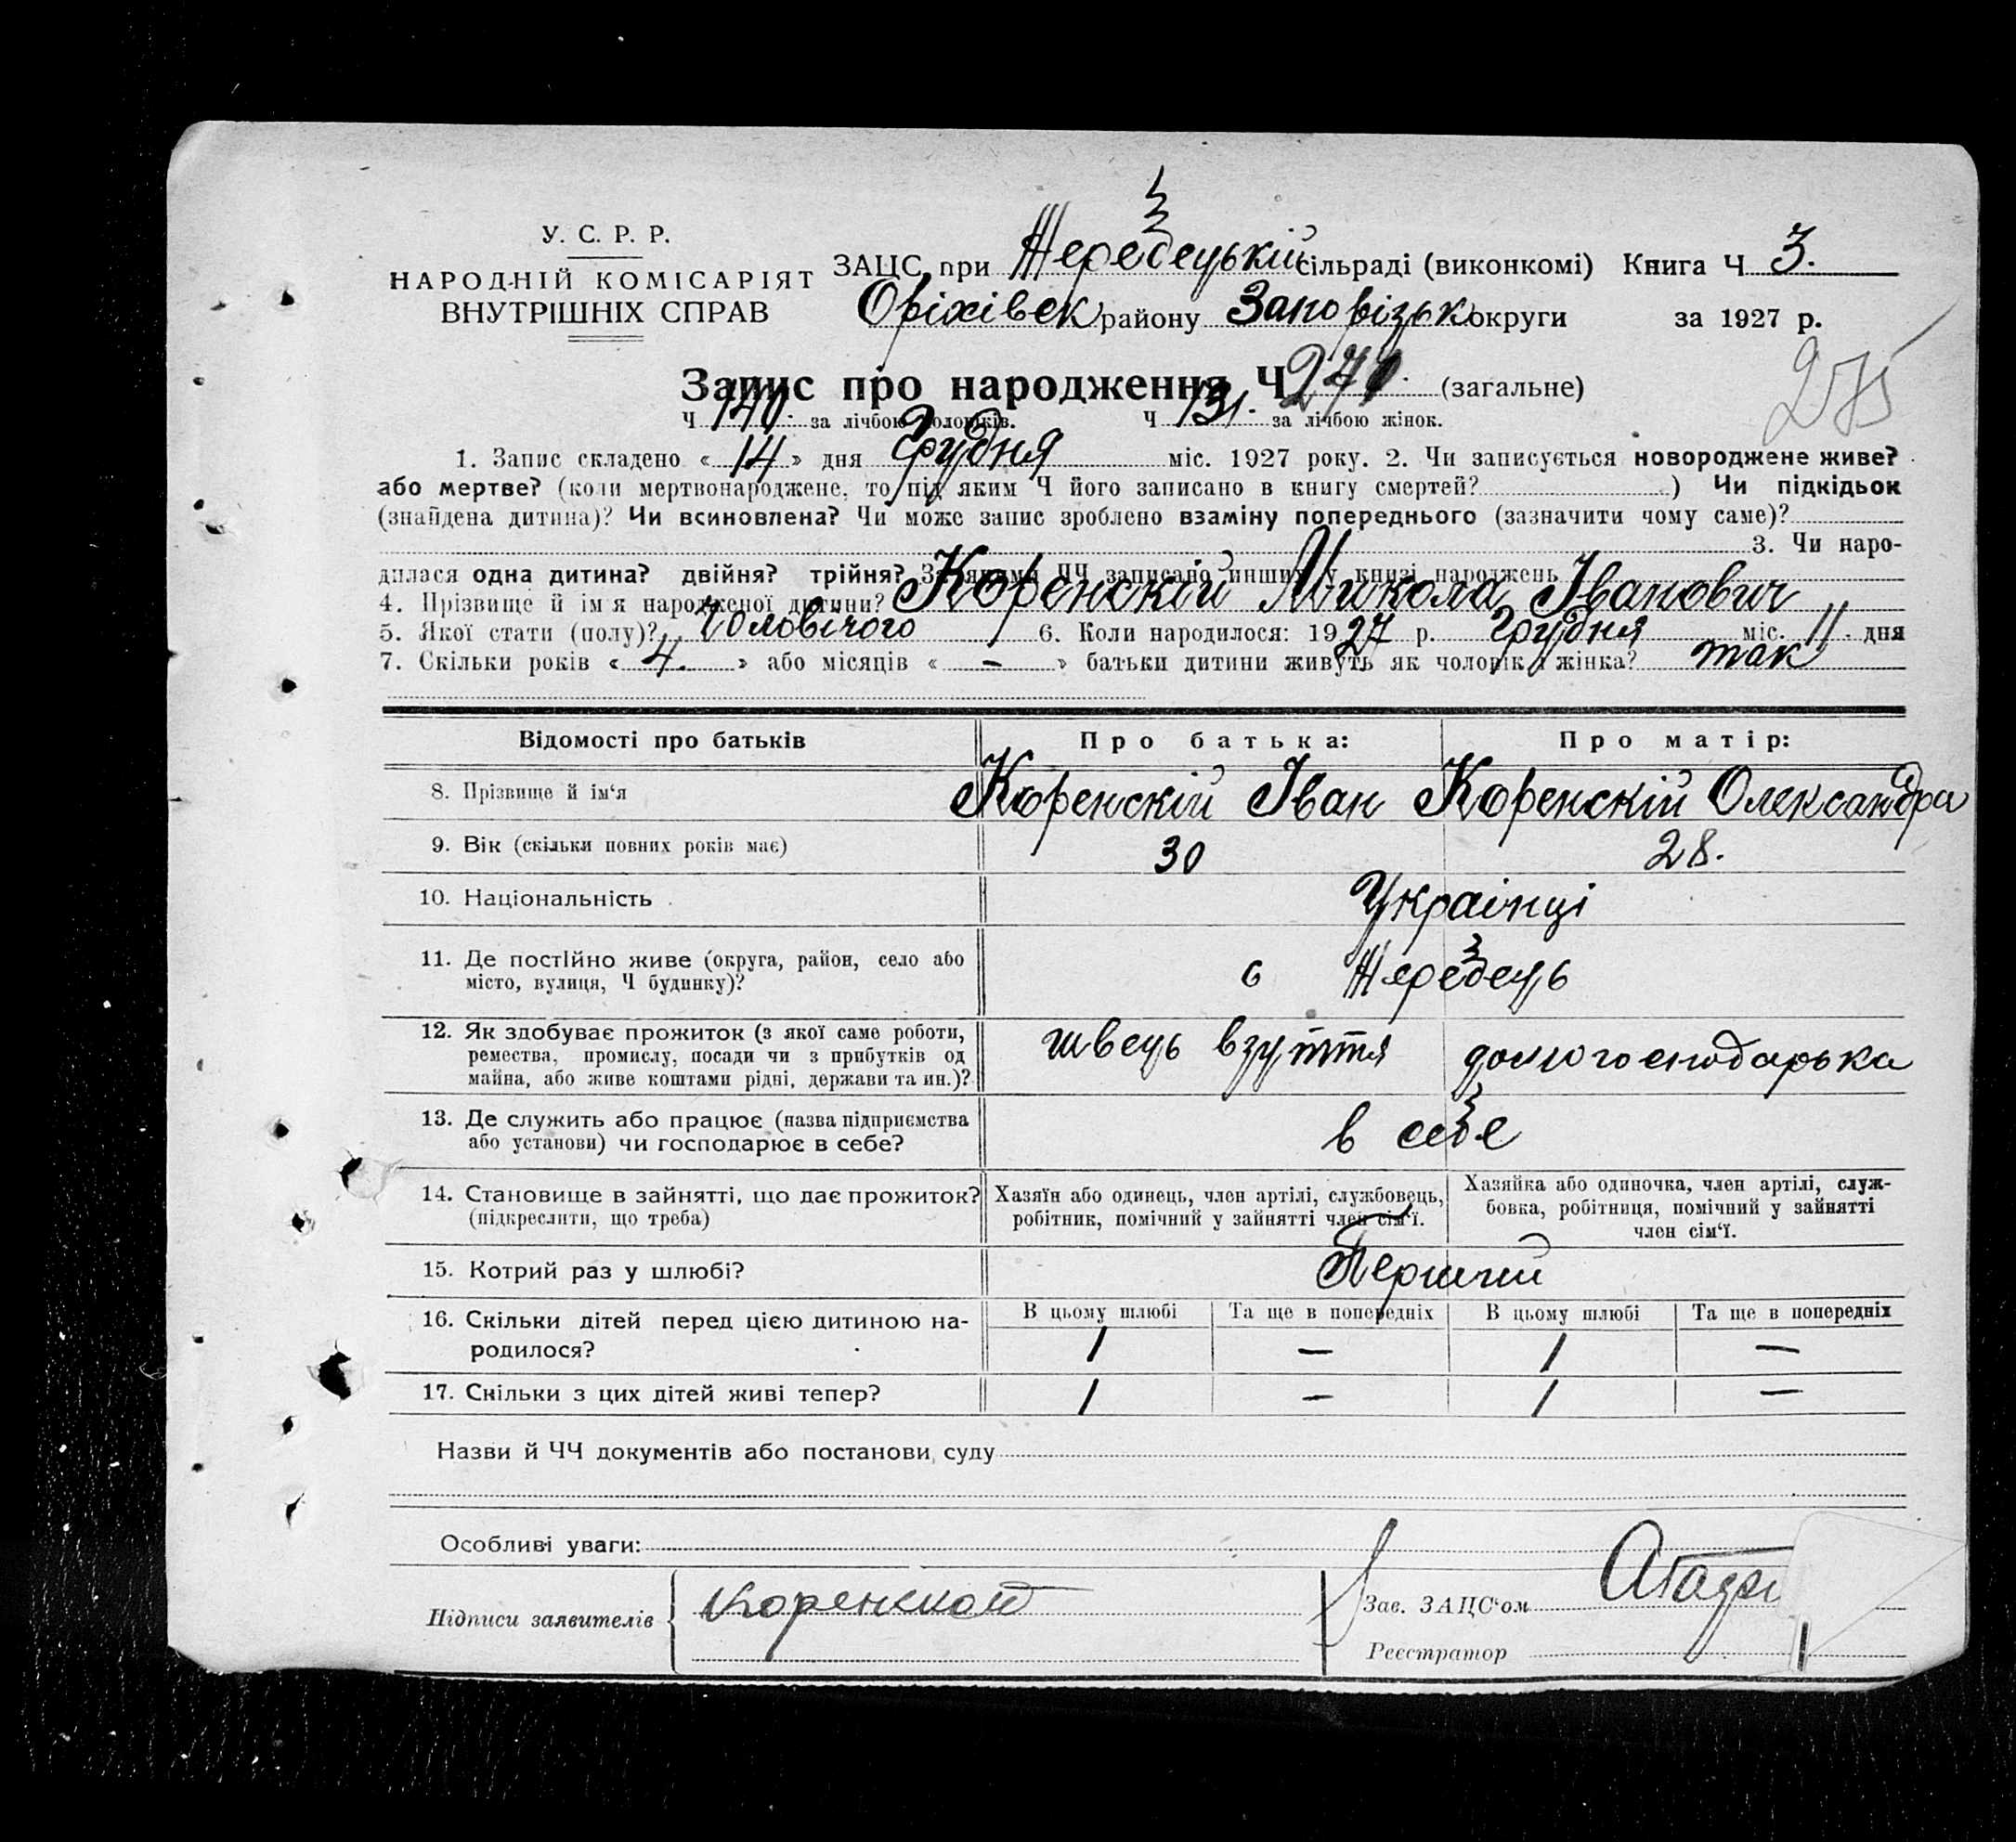 У. С. Р. Р.
НАРОДНІЙ КОМІСАРІЯТ
ВНУТРІШНІХ СПРАВ
ЗАЦС при Жеребецькій сільраді (виконкомі) Книга Ч 3.
Оріхівск району Запорізьк округи за 1927 р.
Запис про народження Ч 271. (загальне)
275
Ч 140. за лічбою чоловіків. Ч 131. за лічбою жінок.
1. Запис складено « 14 » дня Грудня міс. 1927 року. 2. Чи записується новороджене живе?
або мертве? (коли мертвонароджене, то під яким Ч його записано в книгу смертей? ) Чи підкідьок
(знайдена дитина)? Чи всиновлена? Чи може запис зроблено взаміну попереднього (зазначити чому саме)?
3. Чи наро-
дилася одна дитина? двійня? трійня? За якими ЧЧ записано инших у книзі народжень
4. Прізвище й ім я народженої дитини? Коренскій Микола Іванович
5. Якої стати (полу)? Чоловічого 6. Коли народилося: 1927 р. Грудня міс. 11. дня
7. Скільки років « 4. » або місяців « - » батьки дитини живуть як чоловік і жінка? так
Відомості про батьків Про батька: Про матір:
8. Прізвище й ім‘я Коренскій Іван Коренскій Олександра
9. Вік (скільки повних років має) 30 28.
10. Національність Украінці
11. Де постійно живе (округа, район, село або
місто, вулиця, Ч будинку)? с Жеребець
12. Як здобуває прожиток (з якої саме роботи,
ремества, промислу, посади чи з прибутків од
майна, або живе коштами рідні, держави та ин.)? швець взуття домогосподарька
13. Де служить або працює (назва підприємства
або установи) чи господарює в себе? в себе
14. Становище в зайнятті, що дає прожиток?
(підкреслити, що треба)
Хазяїн або одинець, член артілі, службовець,
робітник, помічний у зайнятті член сім‘ї.
Хазяйка або одиночка, член артілі, служ-
бовка, робітниця, помічний у зайнятті
член сім‘ї.
15. Котрий раз у шлюбі? Перший
В цьому шлюбі Та ще в попередніх В цьому шлюбі Та ще в попередніх
16. Скільки дітей перед цією дитиною на-
родилося? 1 — 1 —
17. Скільки з цих дітей живі тепер? 1 — 1 —
Назви й ЧЧ документів або постанови суду
Особливі уваги:
Підписи заявителів Коренской
Зав. ЗАЦС‘ом
Реєстратор